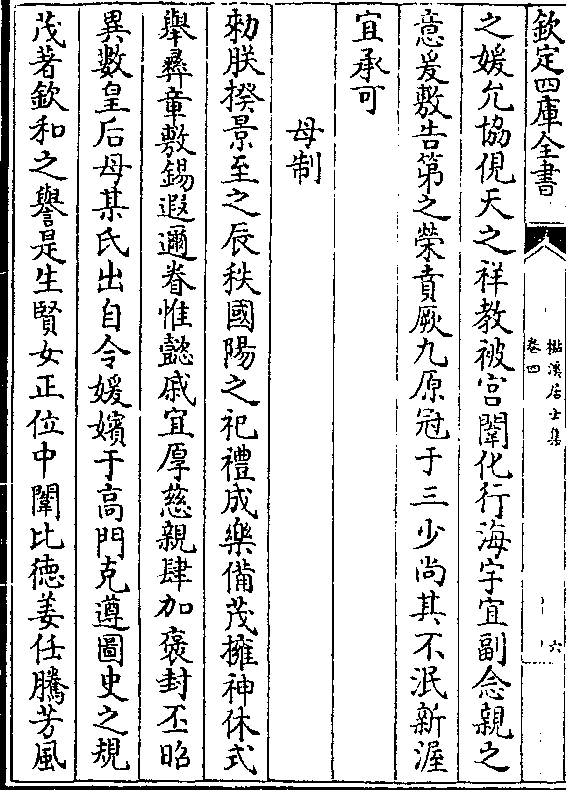 欽定四庫全書
樵溪居士集
卷四
六
之媛允協俔天之祥教被宫闈化行海宇宜副念親之
意爰敷告第之榮賁厥九原冠于三少尚其不泯新渥
宜承可
母制
勑朕揆景至之辰秩國陽之祀禮成樂備茂擁神休式
舉彞章敷錫遐邇眷惟懿戚宜厚慈親肆加褒封丕昭
異數皇后母某氏出自令媛嬪于高門克遵圖史之規
茂著欽和之譽是生賢女正位中闈比德姜任騰芳風